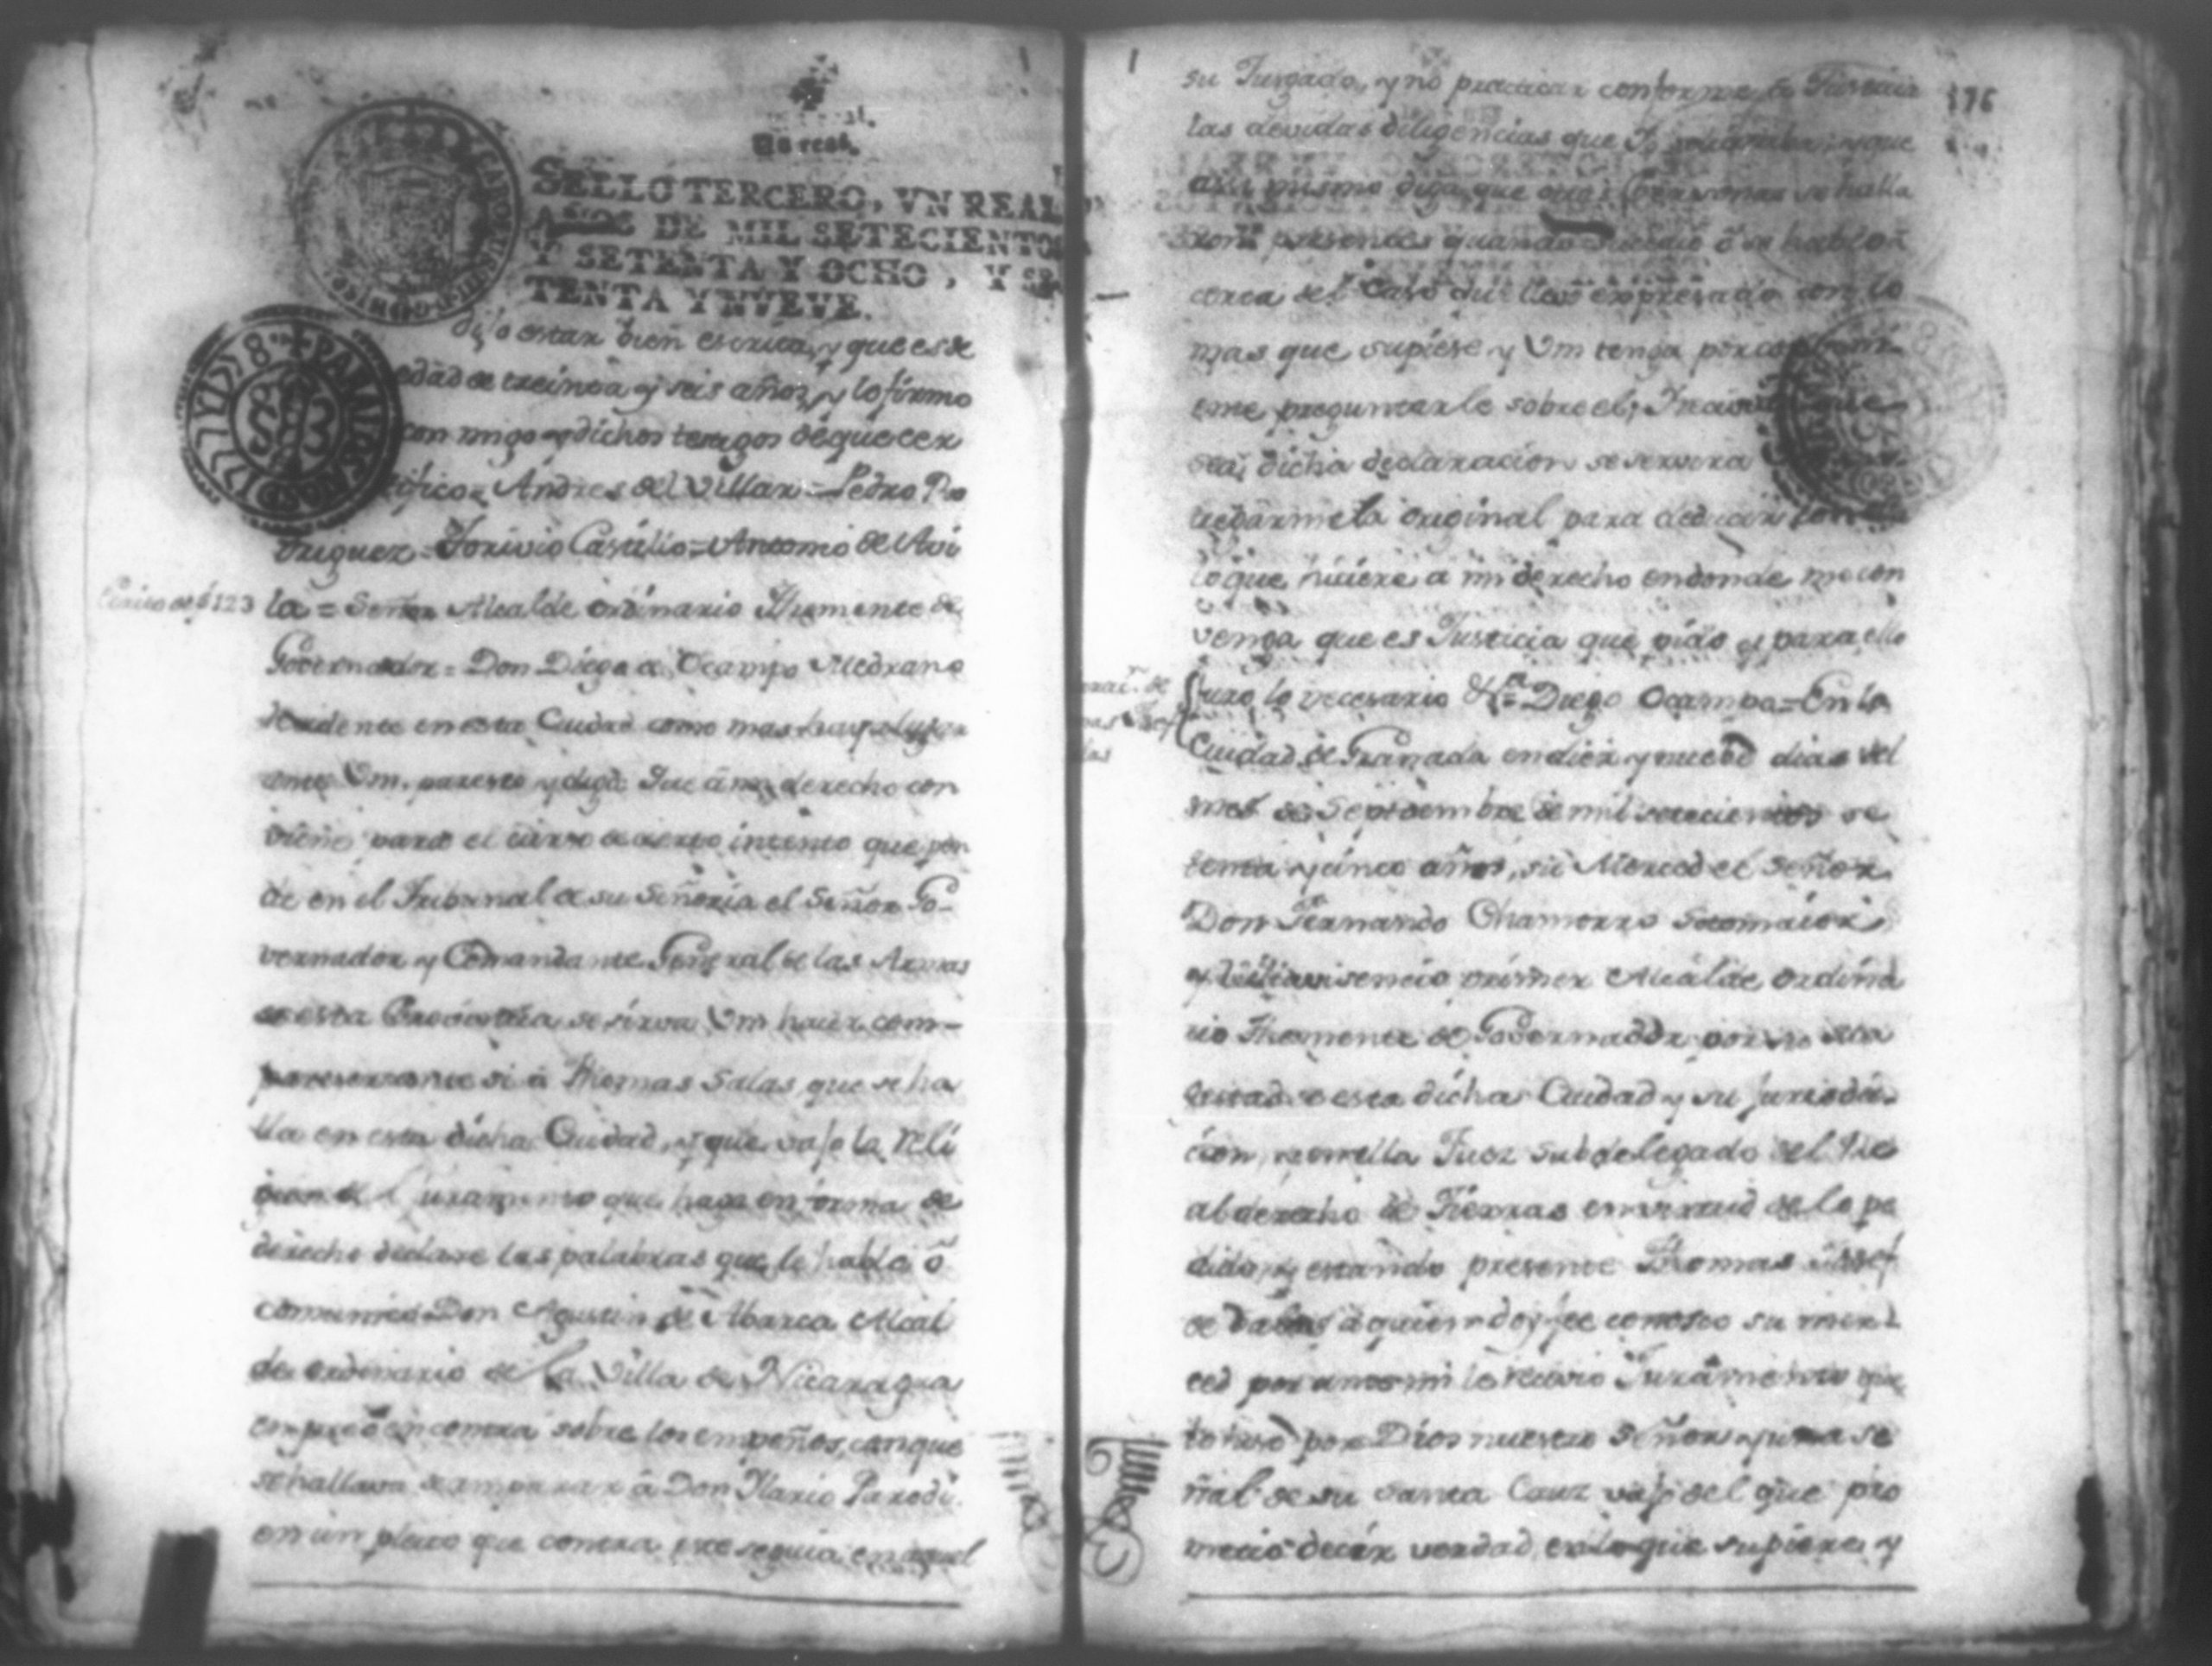 Un real.
SELLO TERCERO, VN REAL
AÑOS DE MIL SETECIENTOS
Y SETENTA Y OCHO, Y SE
TENTA Y NVEVE.
dijo estar bien escrita, y que es de
edad de treinta y seis años, y lo firmo
con migo y dichos testigos de que cer
tifico = Andres del Villar = Pedro Ro
driguez = Torivio Castillo = Antonio de Avi
la = Señor Alcalde ordinario Theniente de
Governador = Don Diego de Ocampo Medrano
residente en esta Ciudad como mas haya lugar
ante Vm. paresco y digo Que â mi derecho con
viene para el curso de cierto intento que pen
de en el Tribunal de su Señoria el Señor Go-
vernador y Comandante General de las Armas
de esta Provincia se sirva Vm hacer com-
parecer ante si â Thomas Salas, que se ha
lla en esta dicha Ciudad, y que vajo la reli
gion del juramento que haga en forma de
derecho declare las palabras que le hablo ô
comunicó Don Agustin de Abarca Alcal
de ordinario de la Villa de Nicaragua
en contra sobre los empeños, con que
se hallava de amparar â Don Ylario Parodi
en un pleito que contra ese seguia en aquel
176
su Jusgado, y no practicar conforme â Justicia
las devidas diligencias que
asi mismo diga que otras Personas se halla
ron presentes quando ô se habló a
cerca del caso que llevo expresado con lo
mas que supiese y Vm tenga por
eme preguntarle sobre el,
dicha declaracion se servira
original para deducir
lo que hiciere a mi derecho en donde me con
venga que es Justicia que pido y para ello
juro lo necesario &ª = Diego Ocampo = En la
Ciudad de Granada en diez y nueve dias del
mes de Septiembre de mil setecientos se
tenta y cinco años, su Merced el Señor
Don Fernando Chamorro Sotomaior
y Villavisencio primer Alcalde ordina
rio Theniente de Governador por su Ma
gestad de esta dicha Ciudad y su jurisdic
cion, y en ella Juez Subdelegado del Re
al derecho de Tierras en virtud de lo pe
dido, y estando presente Thomas Josef
de Salas â quien doy fee conosco su mer
ced por ante mi le recivio Juramento que
lo hiso por Dios nuestro Señor y una se
ñal de su Santa Cruz vajo del que pro
metio decir verdad en lo que supiere y